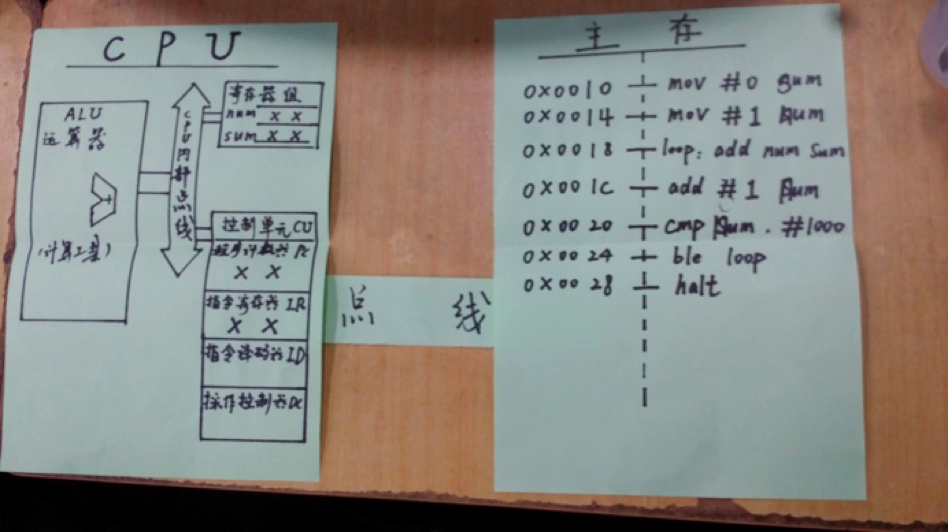 CPU
ALU
运算器
(计算工具)
CPU内部总线
寄存器组
num X X
sum X X
控制单元CU
程序计数器PC
X X
指令寄存器IR
X X
指令译码器ID
操作控制器OC
总线
主存
0X0010 mov #0 sum
0X0014 mov #1 num
0X0018 loop: add num sum
0X001C add #1 num
0X0020 cmp num. #1000
0X0024 ble loop
0X0028 halt